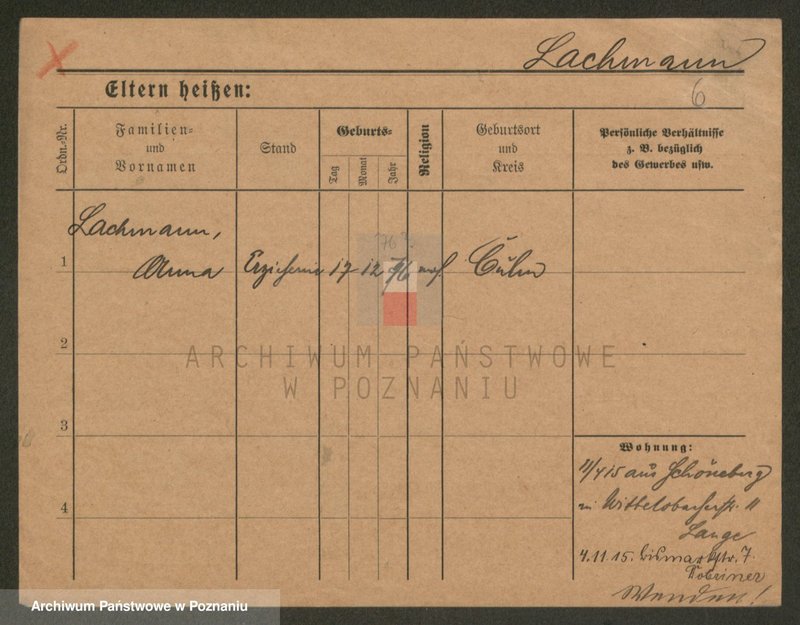 Lachmann
6
Eltern heißen:
Ordn.-Nr.
Familien-
und
Vornamen
Stand
Geburts-
Tag
Monat
Jahr
Religion
Geburtsort
und
Kreis
Persönliche Verhältnisse
z. B. bezüglich
des Gewerbes usw.
Lachmann,
1 Anna Erzieherin 17 12 76 mos. Culm
2
3
4
ARCHIWUM PAŃSTWOWE
W POZNANIU
Wohnung:
11/4 15 aus Schöneberg
Wittelsbacherstr. 11
Lange
4.11.15. Bismarckstr. 7
Tobriner
Wenden!
Archiwum Państwowe w Poznaniu